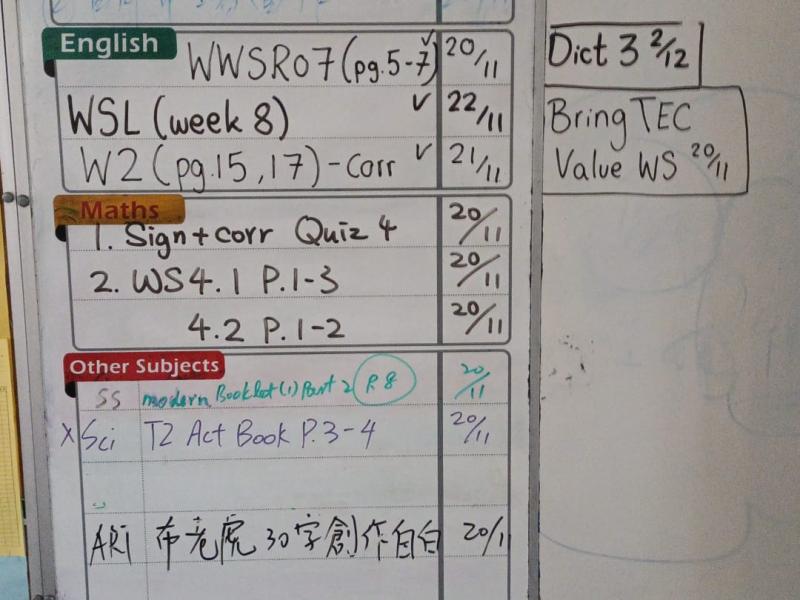 English
WWSR07 (pg.5-7) ✓ 20/11
WSL (week 8) ✓ 22/11
W2 (pg.15,17) - Corr ✓ 21/11
Maths
1. Sign + corr Quiz 4 20/11
2. WS4.1 P.1-3 20/11
4.2 P.1-2 20/11
Other Subjects
SS modern Booklet (1) Part 2 P.8 20/11
X Sci T2 Act Book P.3-4 20/11
ARt 布老虎 30字創作自白 20/11
Dict 3 2/12
Bring TEC
Value WS 20/11